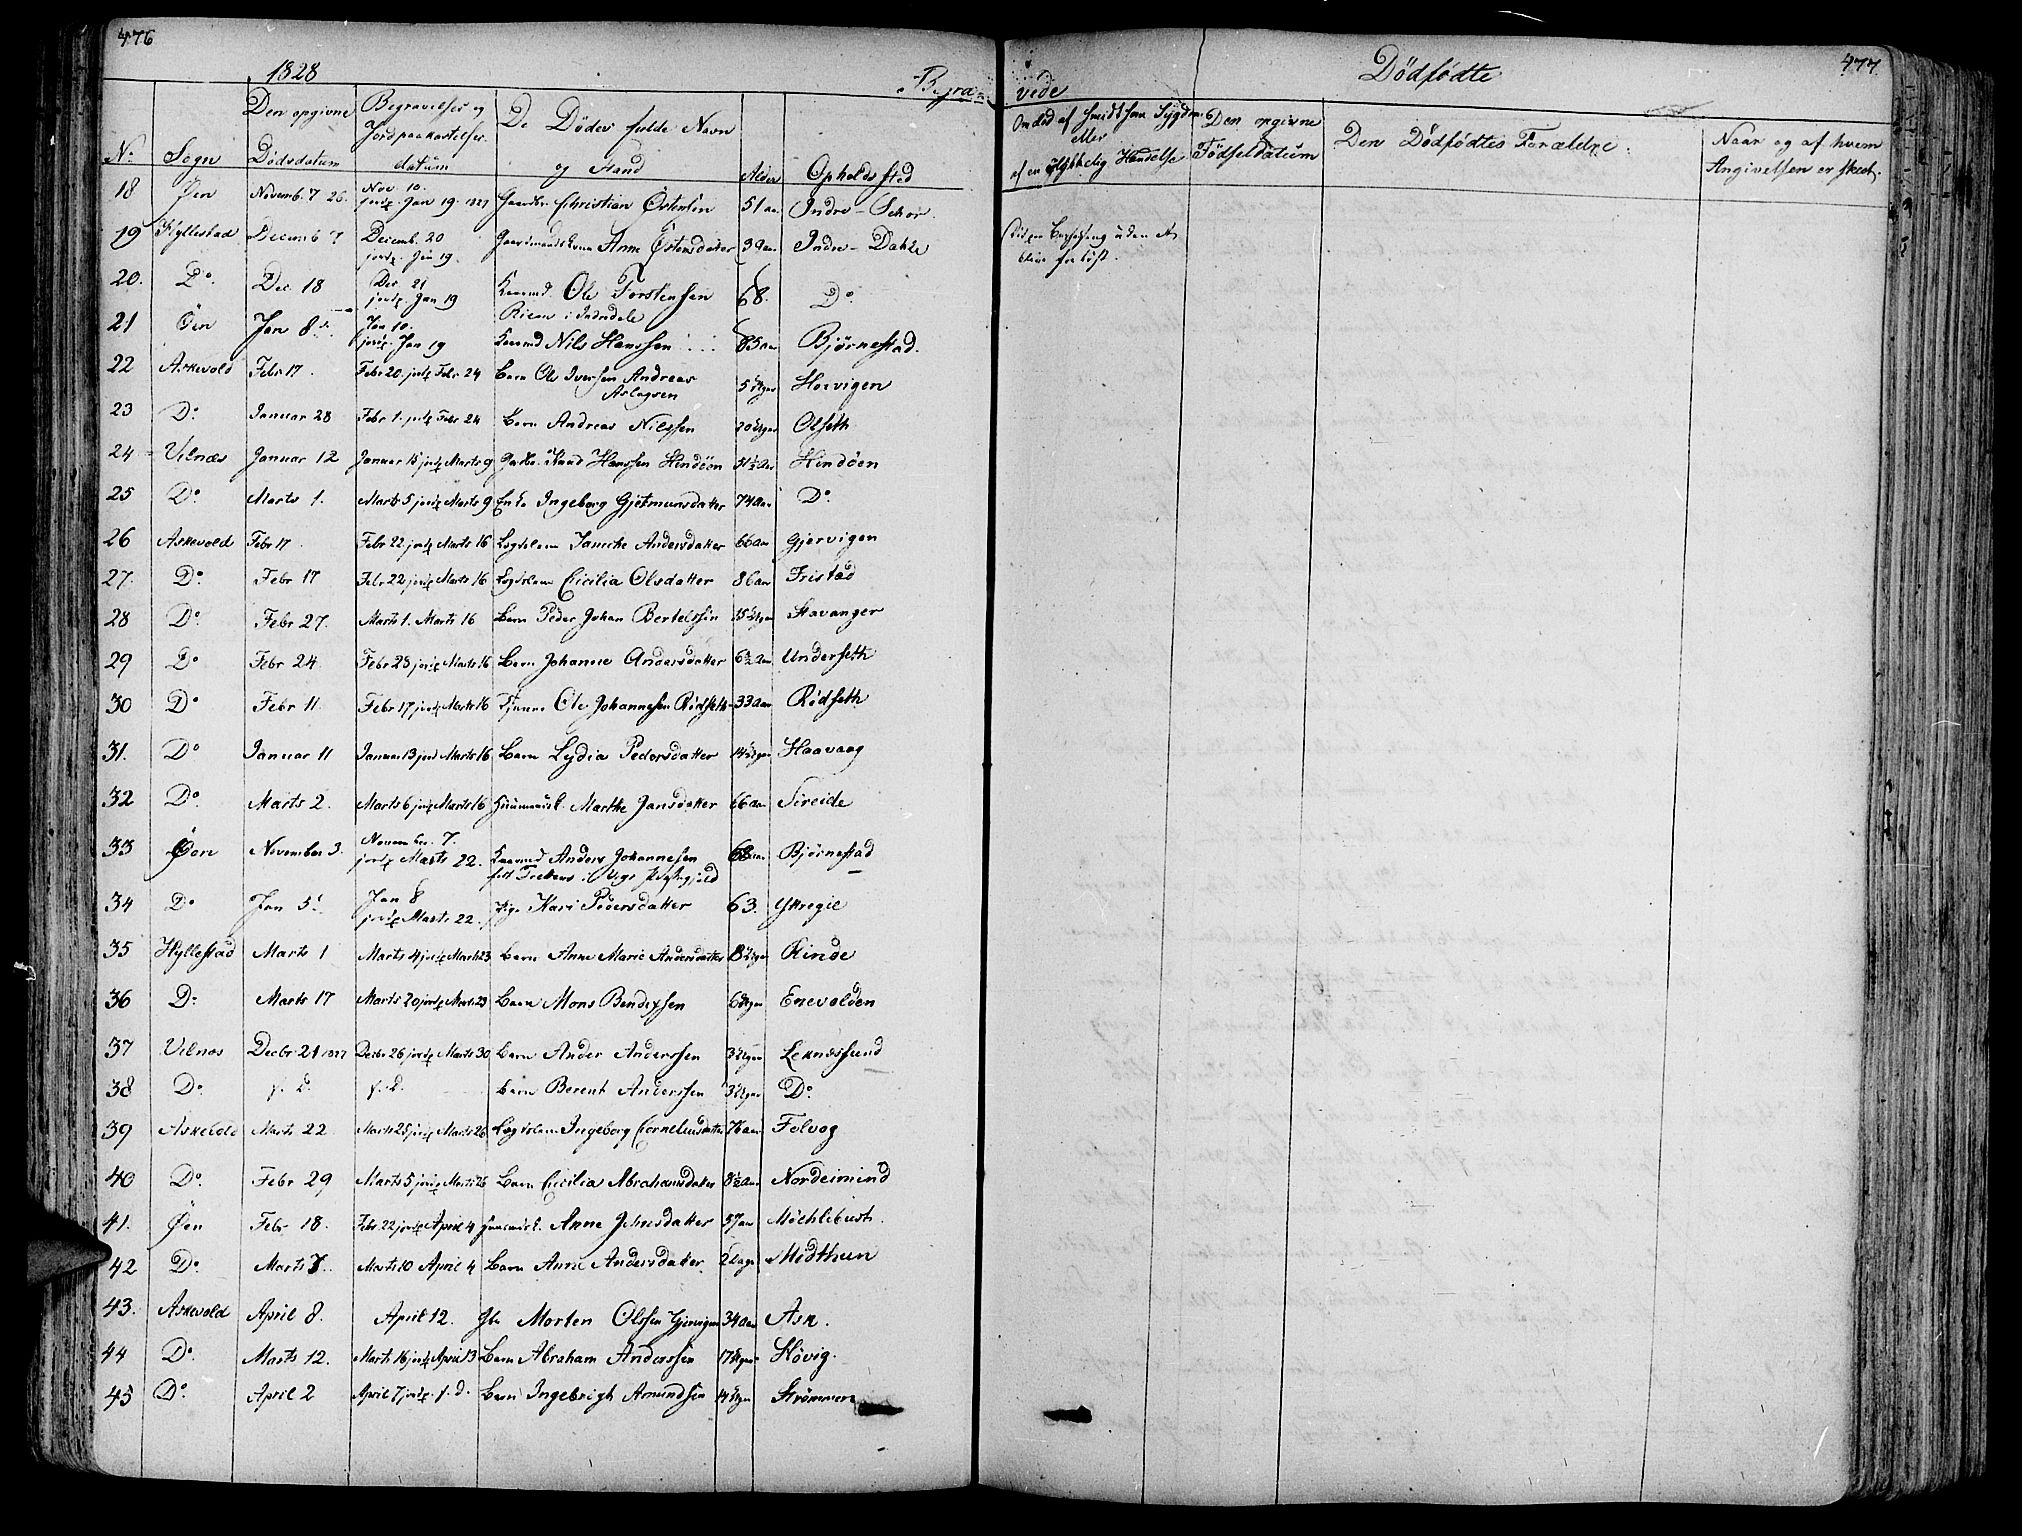 476
1828
Begra
N: Sogn Den opgivne Dödsdatum Begravelses og Jordpaakastelses datum De Dödes fulde Navn og Stand Alder Opholdssted
18 Novemb. 7 26. Nov 10. jordf. Jan 19. 1827 Christian Östensen 51 aar Indre-
19 Hyllestad Decemb 7 Decemb. 20 jordf. Jan 19. Anne Östensdatter 39 aar Indre-Dahle
20. Do. Dec 18 Dec. 21 jordf. Jan 19 Ole Torstensen 68. Do
21 Öen Jan 8 Jan 10. jordf. Jan 19 Nils Hanssen 85 aar Bjørnestad.
22 Askevold Febr 17. Febr 20. jordf. Febr 24 Barn Ole Iversen Andreas Aslagsen Horvigen
23 Do. Januar 28 Febr 1. jordf. Febr 24 Barn Andreas Nilssen 20 Uger Olseth
24 Vilnæs Januar 12 Januar 15 jordf. Marts 9 Hanssen Hindöen 51½ Aar Hindöen
25 Do. Marts 1. Marts 5 jordf. Marts 9 Enke Ingeborg Gjetmunsdatter 74 Aar Do.
26 Askevold Febr 17. Febr 22 jordf. Marts 16 Lægdslem Janicke Andersdatter 66 aar Gjervigen
27. Do. Febr 17 Febr 22 jordf. Marts 16 Lægdslem Cicilia Olsdatter 86 aar Fristad
28 Do. Febr 27. Marts 1. Marts 16 Barn Peder Johan Bertelssen 15 Uger Stavanger
29 Do Febr 24. Febr 25 jordf. Marts 16 Barn Johanne Andersdatter 6½ Aar Underseth
30 Do Febr 11. Febr 17 jordf. Marts 16 Ole Johannesen Rödseth 33 aar Rödseth
31. Do Januar 11 Januar 13 jord Marts 16 Barn Lydia Pedersdatter 14 Uger Haavaag
32 Do. Marts 2. Marts 6 jordf. Marts 16 Marthe Jansdatter 66 aar Sireide
33 Öen November 3. November. 7. jordf. Marts 22. Anders Johannesen 68 aar Bjørnestad
34 Do Jan 5 Jan 8 jordf. Marts 22. Pige Kari Pedersdatter 63. Yttregie
35 Hyllestad Marts 1 Marts 4 jordf. Marts 23 Barn Anne Marie Andersdatter 8 Uger Rinde
36 Do Marts 17 Marts 20 jordf. Marts 23 Barn Mons Bendixsen 6 Uger Enevolden
37 Vilnæs Decbr 21 1827 Decbr 26 jordf. Marts 30 Barn Ander Anderssen 3 Uger Leknæssund
38 Do. f. d. f. d. Barn Berent Anderssen 3 Uger Do.
39 Askevold Marts 22. Marts 25 jordf. Marts 26 Lægdslem Ingeborg Corneliusdatter 76 aar Folvog
40 Do. Febr 29 Marts 5 jordf. Marts 26 Barn Cicilia Abrahamsdatter 8½ Aar Nordeimind
41. Öen Febr 18. Febr. 22 jordf. April 4 Anne Johnsdatter 57 aar Möchlebust.
42 Do. Marts 7. Marts 10 April 4 Barn Anne Andersdatter 2 Dage Midthun
43. Askevold April 8. April 12. Gbr Morten Olssen Gjervigen 34 Aar Ask.
44 Do. Marts 12. Marts 16 jordf. April 13 Barn Abraham Anderssen 17 Uger Hövig.
45 Do. April 2 April 7 jordf. f. d. Barn Ingebrigh Amundsen 14 Uger Strömmen
vede
Dödfödte
477.
Om död af Smidtsom Sygdom eller af en ulykkelig Hændelse
Den opgivne Födseldatum
Den Dödfödtes Forældre.
Naar og af hvem Angivelsen er skeet.